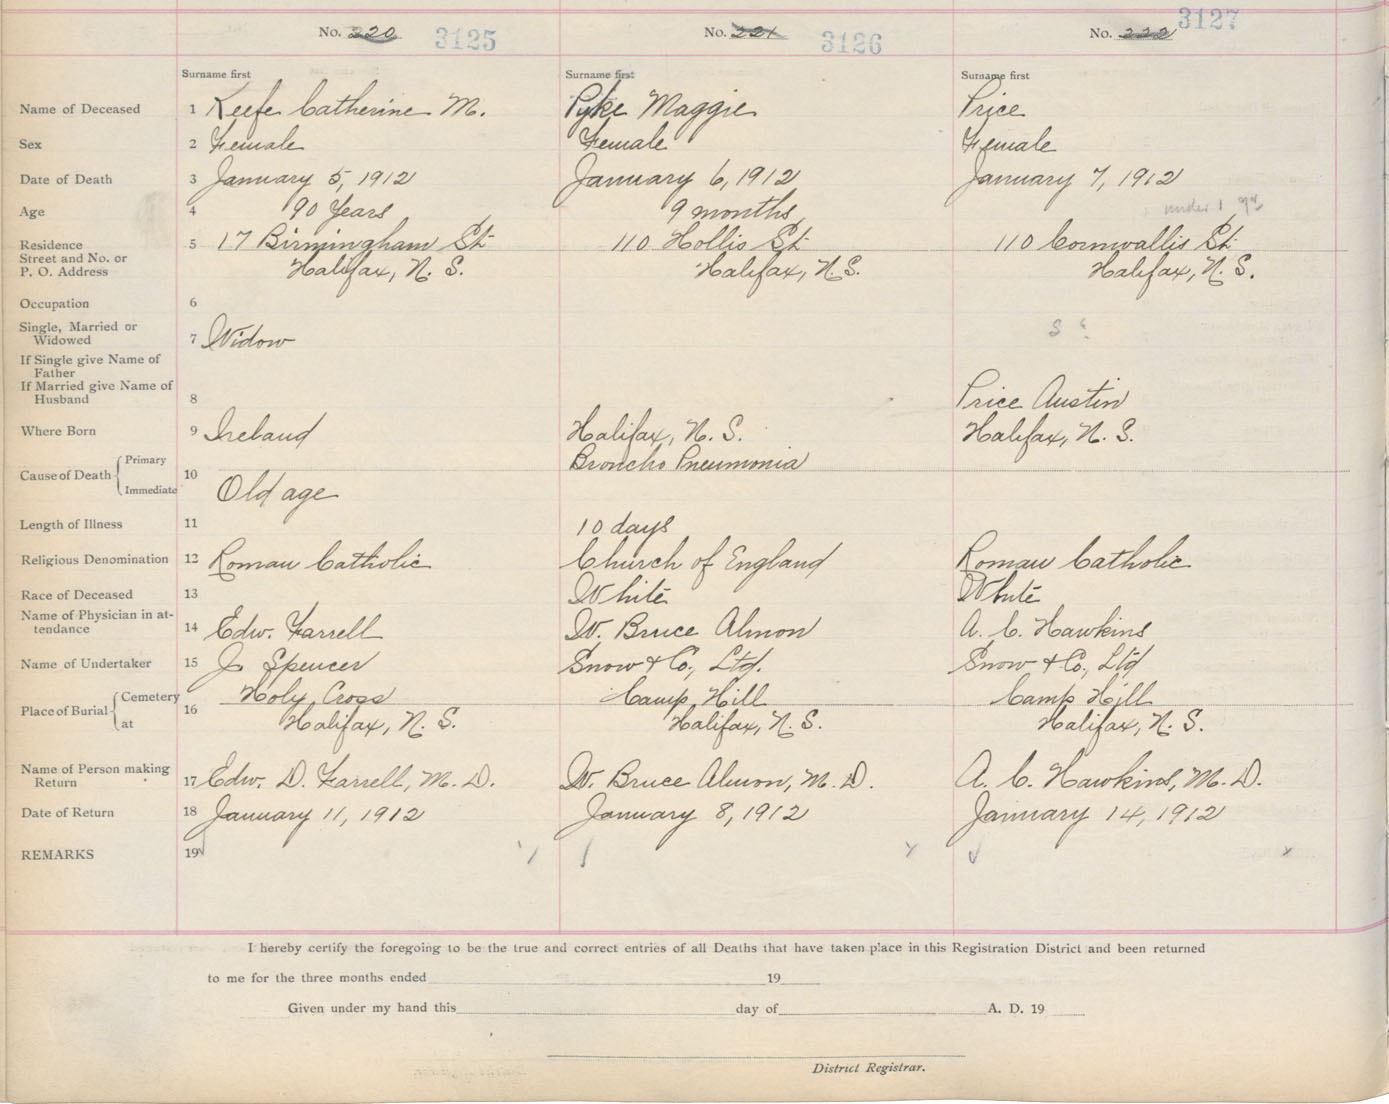 No. 220 3125 No. 221 3126 No. 222 3127
Surname first Surname first Surname first
Name of Deceased 1 Keefe Catherine M. Pyke Maggie Price
Sex 2 Female Female Female
Date of Death 3 January 5, 1912 January 6, 1912 January 7, 1912
Age 4 90 Years 9 months under 1 yr
Residence 5 17 Birmingham St. 110 Hollis St. 110 Cornwallis St.
Street and No. or
P. O. Address Halifax, N. S. Halifax, N. S. Halifax, N. S.
Occupation 6
Single, Married or S
Widowed 7 Widow
If Single give Name of
Father
If Married give Name of
Husband 8 Price Austin
Where Born 9 Ireland Halifax, N. S. Halifax, N. S.
Primary Broncho Pneumonia
Cause of Death 10
Immediate Old age
Length of Illness 11 10 days
Religious Denomination 12 Roman Catholic Church of England Roman Catholic
Race of Deceased 13 White White
Name of Physician in at-
tendance 14 Edw. Farrell W. Bruce Almon A. C. Hawkins
Name of Undertaker 15 J. Spencer Snow & Co., Ltd. Snow & Co., Ltd
Cemetery Holy Cross Camp Hill Camp Hill
Place of Burial 16
at Halifax, N. S. Halifax, N. S. Halifax, N. S.
Name of Person making
Return 17 Edw. D. Farrell, M. D. W. Bruce Almon, M. D. A. C. Hawkins, M. D.
Date of Return 18 January 11, 1912 January 8, 1912 January 14, 1912
REMARKS 19
I hereby certify the foregoing to be the true and correct entries of all Deaths that have taken place in this Registration District and been returned
to me for the three months ended 19
Given under my hand this day of A. D. 19
District Registrar.